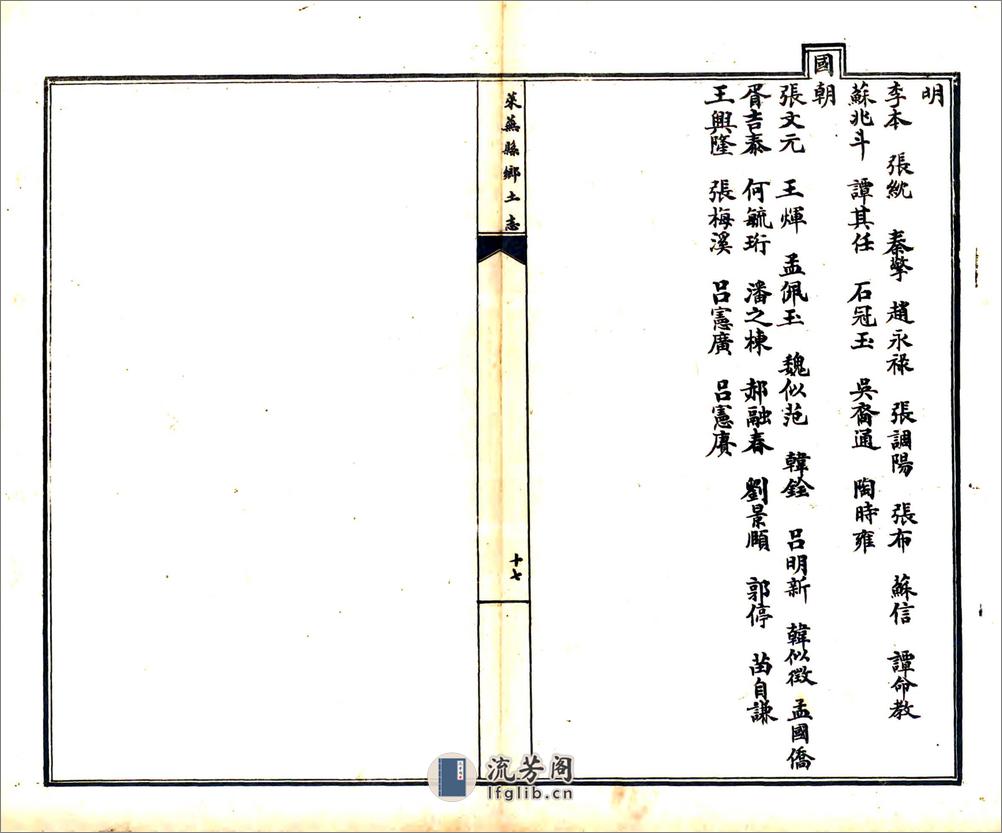 明
李本 張紞 秦擎 趙永祿 張調陽 張布 蘇信 譚命教
蘇兆斗 譚其任 石冠玉 吳裔通 陶時雍
國朝
張文元 王煇 孟佩玉 魏似范 韓銓 呂明新 韓似徵 孟國僑
胥吉泰 何毓珩 潘之棟 郝融春 劉景頤 郭停 苗自謙
王興隆 張梅溪 呂憲廣 呂憲賡
萊蕪縣鄉土志
十七
流芳阁
lfglib.cn